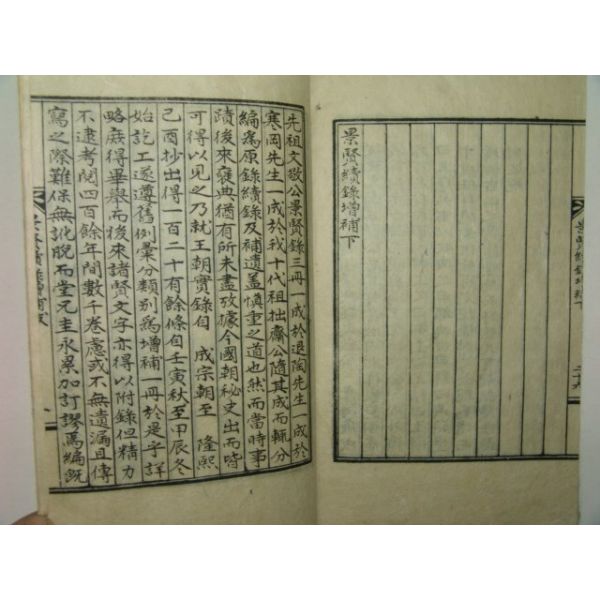 景賢續錄增補下
景賢續錄增補下
二十六
先祖文敬公景賢錄三冊一成於退陶先生一成於
寒岡先生一成於我十代祖拙齋公隨其成而輒分
編爲原錄續錄及補遺盖愼重之道也然而當時事
蹟後來褒典猶有所未盡攷據今國朝秘史出而皆
可得以見之乃就王朝實錄自 成宗朝至 隆熙
己酉抄出得一百二十有餘條自壬寅秋至甲辰冬
始訖工遂遵舊例彙分類別爲增補一冊於是乎詳
略庶得畢擧而後來諸賢文字亦得以附錄但精力
不逮考閱四百餘年間數千卷慮或不無遺漏且傳
寫之際難保無訛脫而堂兄圭永累加訂謬爲編旣